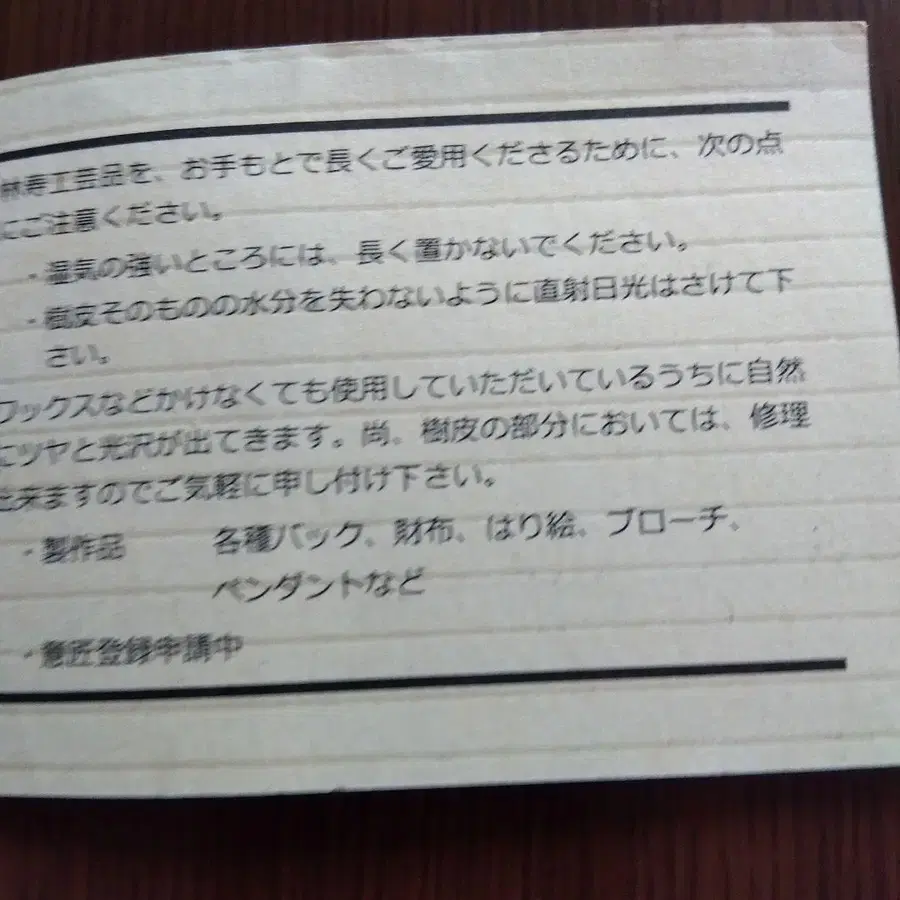 寿工芸品を、お手もとで長くご愛用くださるために、次の点
にご注意ください。
・湿気の強いところには、長く置かないでください。
・樹皮そのものの水分を失わないように直射日光はさけて下
さい。
ワックスなどかけなくても使用していただいているうちに自然
にツヤと光沢が出てきます。尚、樹皮の部分においては、修理
出来ますのでご気軽に申し付け下さい。
・製作品 各種バック、財布、はり絵、ブローチ、
ペンダントなど
・意匠登録申請中